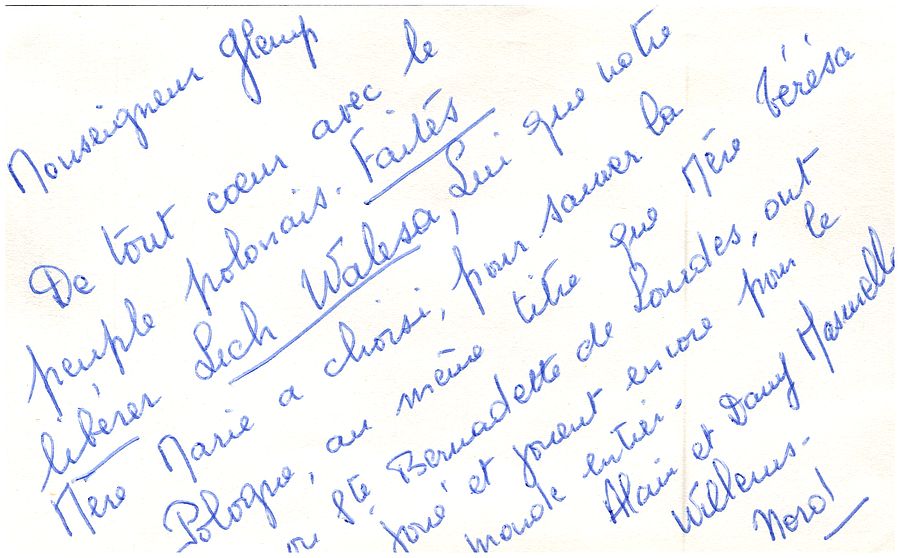 Monseigneur Glemp
De tout cœur avec le
peuple polonais. Faites
libérer Lech Walesa, Lui que notre
Mère Marie a choisi, pour sauver la
Pologne, au même titre que Mère Térésa
ou Ste Bernadette de Lourdes, ont
joué et jouent encore pour le
monde entier.
Alain et Dany Masurelle
Willems.
Nord